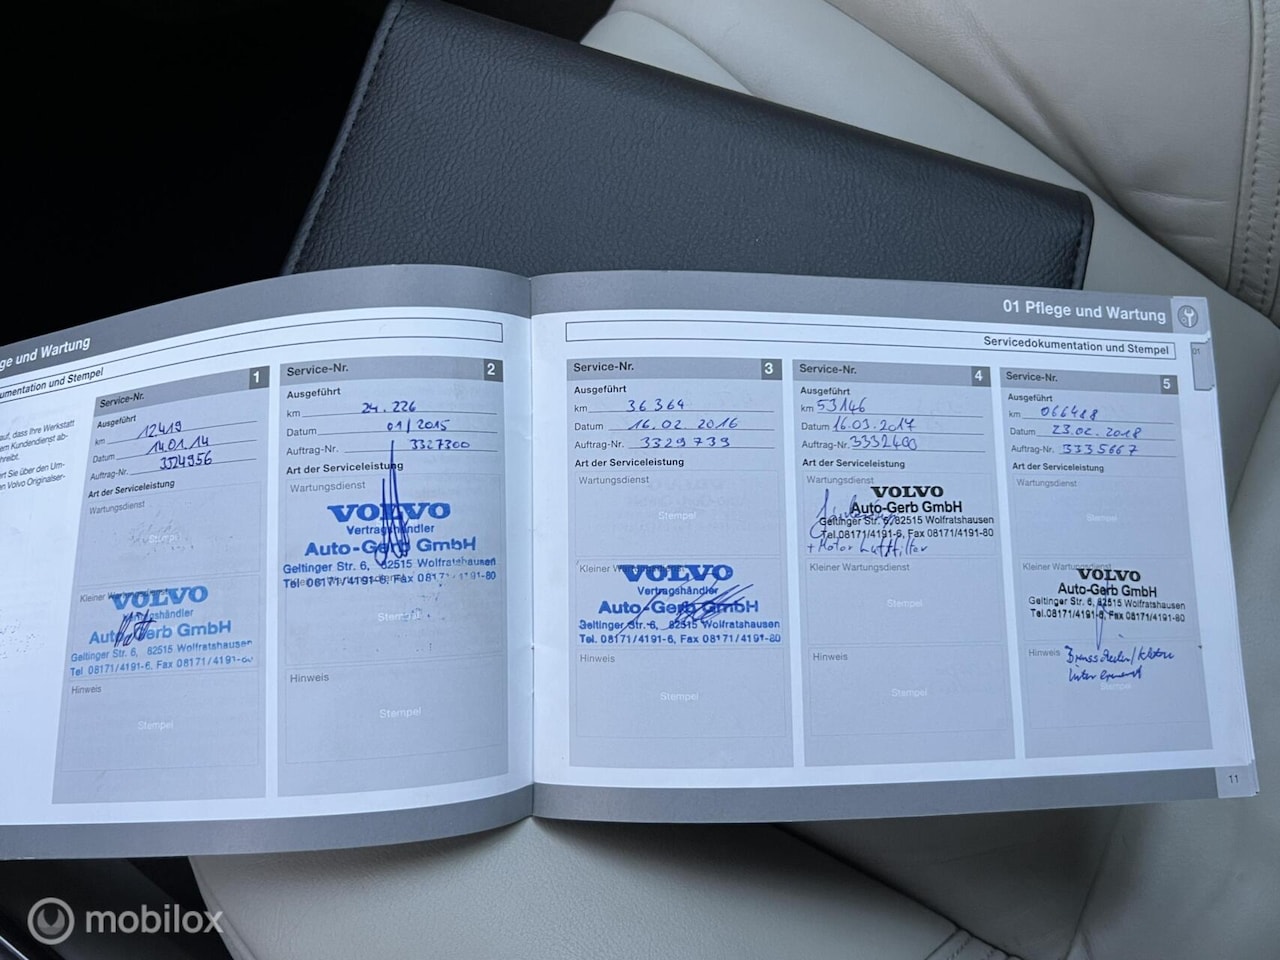 ge und Wartung
umentation und Stempel
auf, dass Ihre Werkstatt
em Kundendienst ab-
hreibt.
rt Sie über den Um-
en Volvo Originalser-
Service-Nr. 1
Ausgeführt
km 12419
Datum 14.01.14
Auftrag-Nr. 3324956
Art der Serviceleistung
Wartungsdienst
Stempel
Kleiner Wartungsdienst
VOLVO
Vertragshändler
Auto-Gerb GmbH
Geltinger Str. 6, 82515 Wolfratshausen
Tel 08171/4191-6, Fax 08171/4191-80
Hinweis
Stempel
Service-Nr. 2
Ausgeführt
km 24.226
Datum 01/2015
Auftrag-Nr. 3327300
Art der Serviceleistung
Wartungsdienst
VOLVO
Vertragshändler
Auto-Gerb GmbH
Geltinger Str. 6, 82515 Wolfratshausen
Tel 08171/4191-6, Fax 08171/4191-80
Stempel
Hinweis
Stempel
01 Pflege und Wartung
01
Servicedokumentation und Stempel
Service-Nr. 3
Ausgeführt
km 36364
Datum 16.02.2016
Auftrag-Nr. 3329739
Art der Serviceleistung
Wartungsdienst
Stempel
Kleiner Wartungsdienst
VOLVO
Vertragshändler
Auto-Gerb GmbH
Geltinger Str. 6, 82515 Wolfratshausen
Tel. 08171/4191-6, Fax 08171/4191-80
Hinweis
Stempel
Service-Nr. 4
Ausgeführt
km 53146
Datum 16.03.2017
Auftrag-Nr. 3332400
Art der Serviceleistung
Wartungsdienst
VOLVO
Auto-Gerb GmbH
Geltinger Str. 6, 82515 Wolfratshausen
Tel. 08171/4191-6, Fax 08171/4191-80
+ Motor Luftfilter
Kleiner Wartungsdienst
Stempel
Hinweis
Stempel
Service-Nr. 5
Ausgeführt
km 066488
Datum 23.02.2018
Auftrag-Nr. 3335667
Art der Serviceleistung
Wartungsdienst
Stempel
Kleiner Wartungsdienst
VOLVO
Auto-Gerb GmbH
Geltinger Str. 6, 82515 Wolfratshausen
Tel. 08171/4191-6, Fax 08171/4191-80
Hinweis
Stempel
11
mobilox